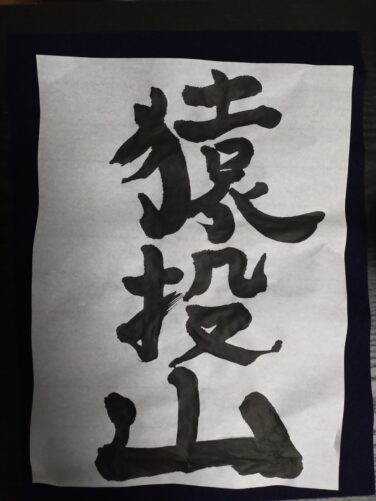 猿投山